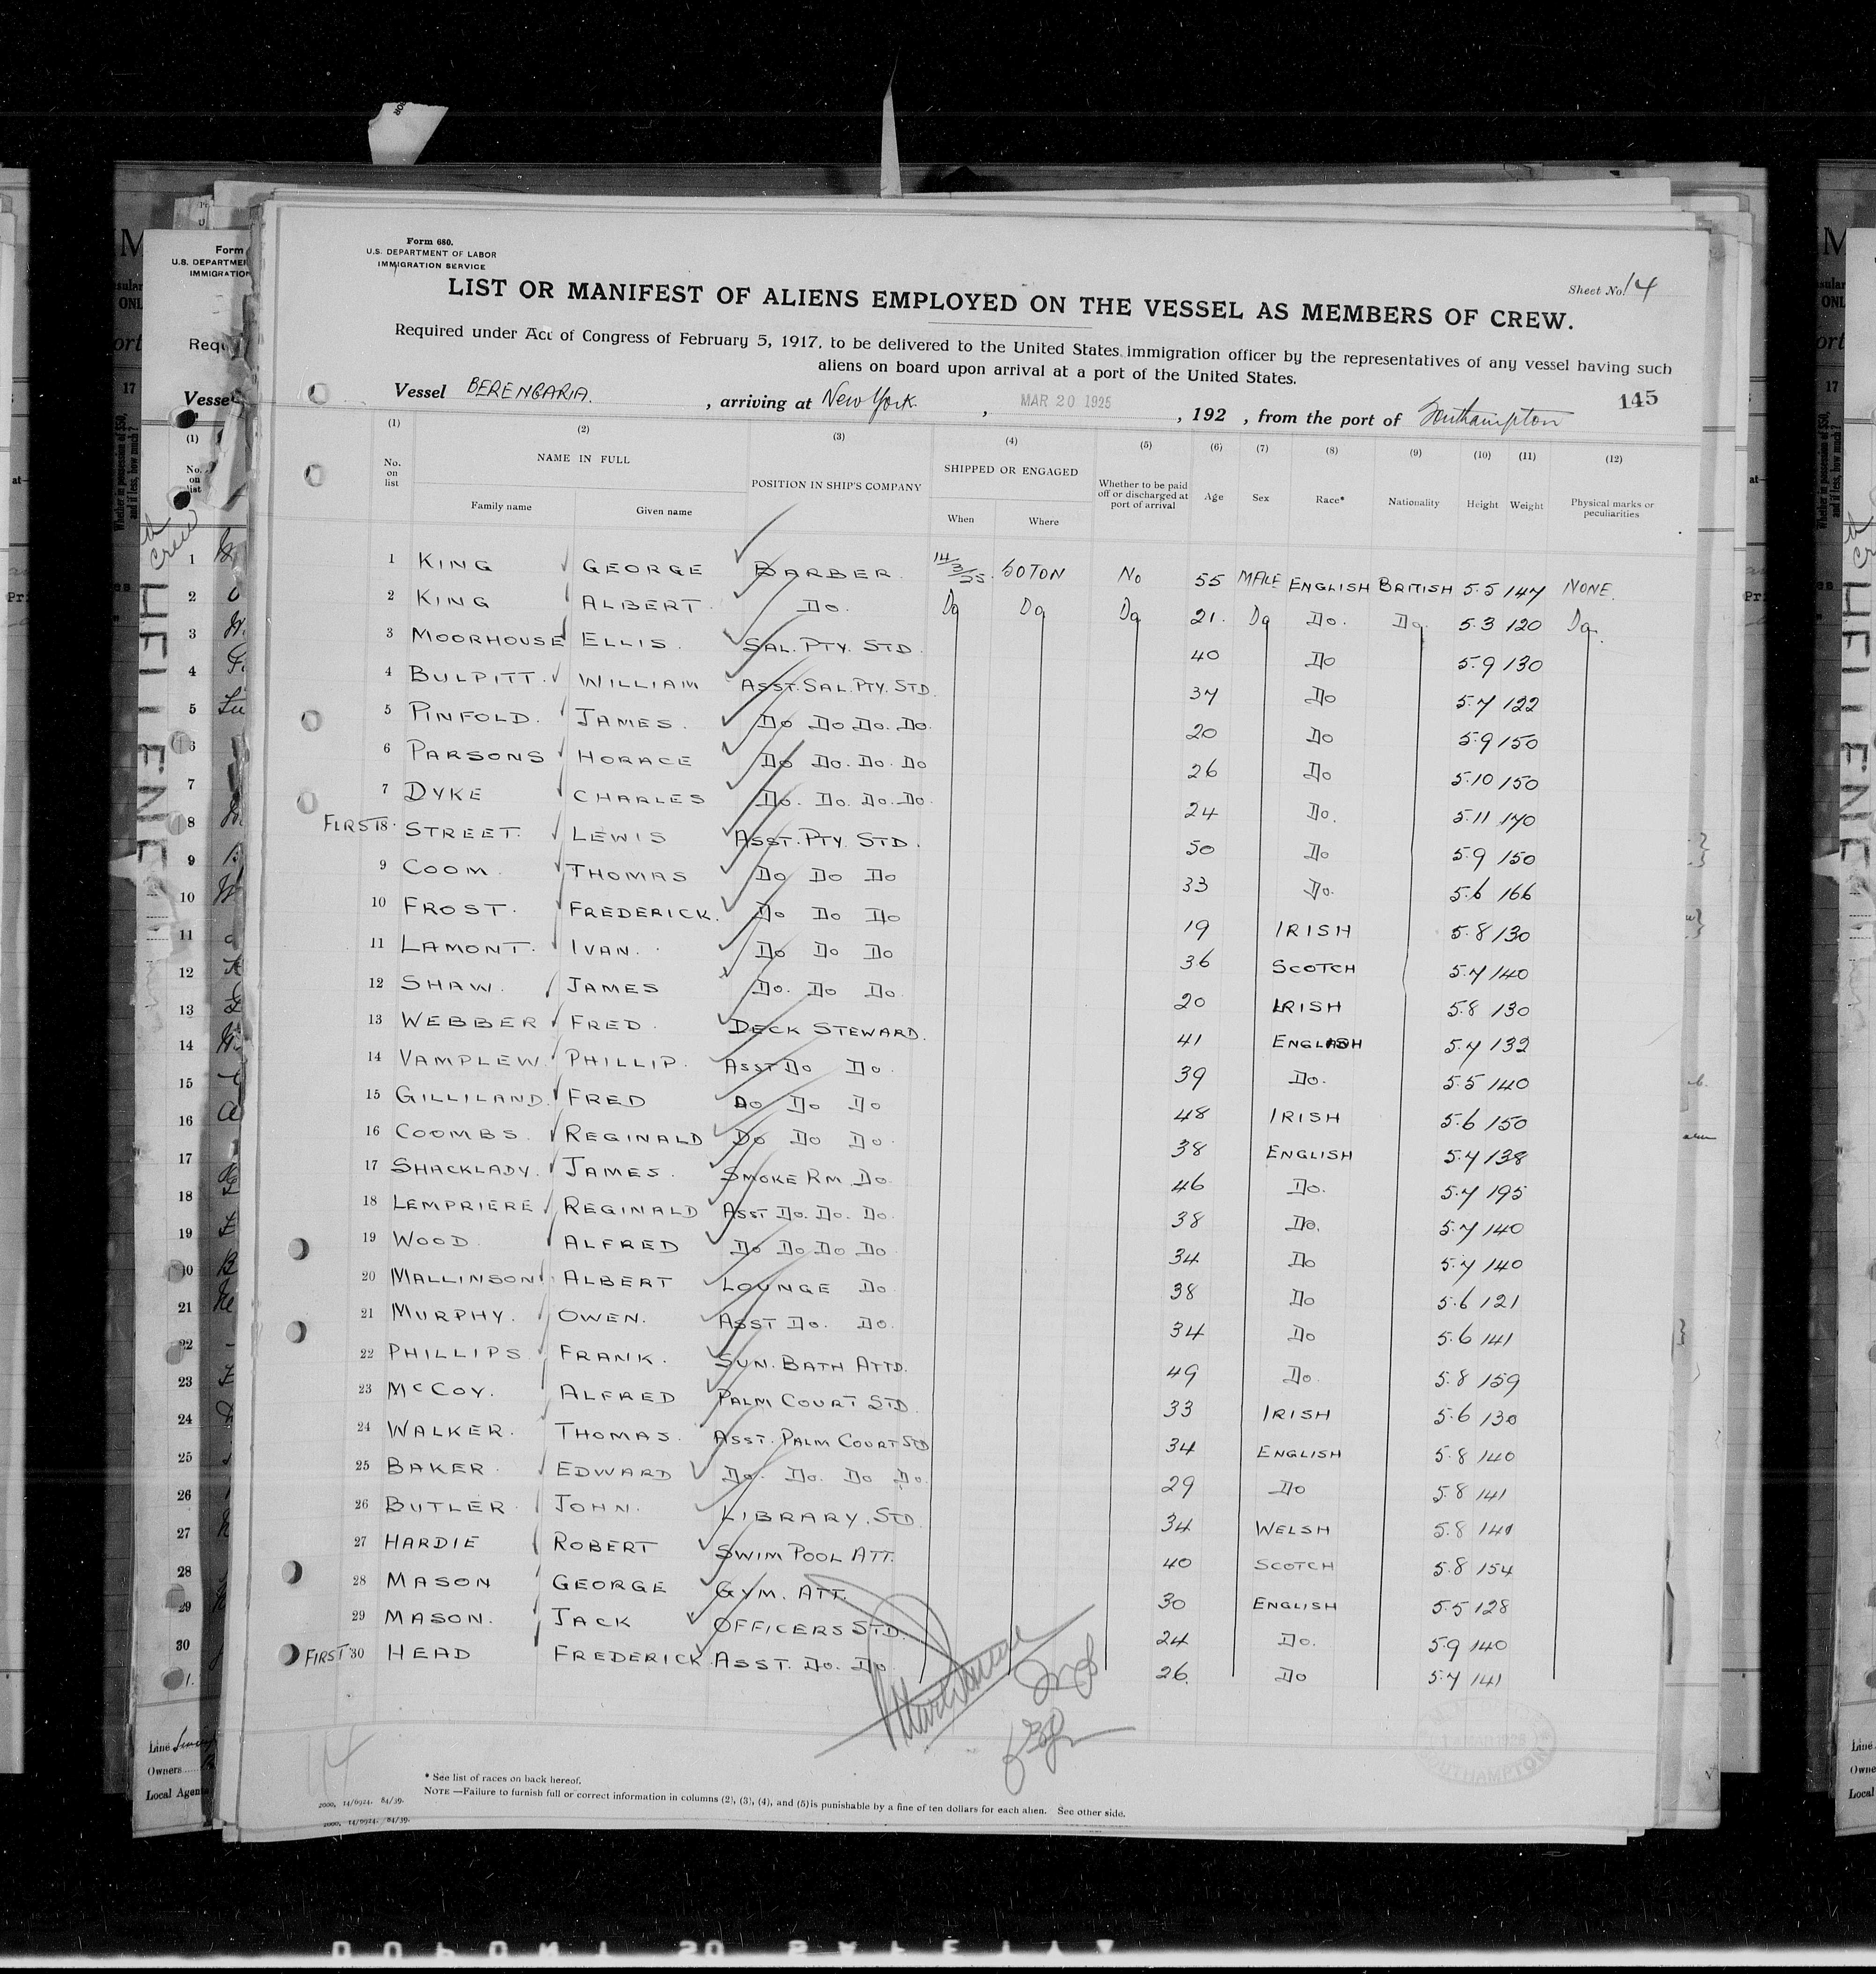 Form 680.
U.S. DEPARTMENT OF LABOR
IMMIGRATION SERVICE
Sheet No. 14
LIST OR MANIFEST OF ALIENS EMPLOYED ON THE VESSEL AS MEMBERS OF CREW.
Required under Act of Congress of February 5, 1917, to be delivered to the United States immigration officer by the representatives of any vessel having such
aliens on board upon arrival at a port of the United States.
145
Vessel BERENGARIA. , arriving at New York. , MAR 20 1925 , 192 , from the port of Southampton
(1) (2) (3) (4) (5) (6) (7) (8) (9) (10) (11) (12)
No. on list NAME IN FULL Family name Given name POSITION IN SHIP'S COMPANY SHIPPED OR ENGAGED When Where Whether to be paid off or discharged at port of arrival Age Sex Race* Nationality Height Weight Physical marks or peculiarities
1 KING GEORGE BARBER. 14/3/25. SOTON No 55 MALE ENGLISH BRITISH 5.5 147 NONE.
2 KING ALBERT. Do. Do Do Do 21. Do Do. Do. 5.3 120 Do.
3 MOORHOUSE ELLIS. SAL. PTY. STD. 40 Do 5.9 130
4 BULPITT. WILLIAM ASST. SAL. PTY. STD. 37 Do 5.7 122
5 PINFOLD. JAMES. Do Do Do. Do. 20 Do 5.9 150
6 PARSONS HORACE Do Do. Do. Do 26 Do 5.10 150
7 DYKE CHARLES Do. Do. Do. Do. 24 Do. 5.11 170
FIRST 8. STREET. LEWIS ASST. PTY. STD. 50 Do 5.9 150
9 COOM. THOMAS Do Do Do 33 Do. 5.6 166
10 FROST. FREDERICK. Do Do Do 19 IRISH 5.8 130
11 LAMONT. IVAN. Do Do Do 36 SCOTCH 5.7 140
12 SHAW. JAMES Do. Do Do. 20 IRISH 5.8 130
13 WEBBER FRED. DECK STEWARD. 41 ENGLISH 5.7 132
14 VAMPLEW. PHILLIP. ASST Do Do. 39 Do. 5.5 140
15 GILLILAND. FRED Do Do Do 48 IRISH 5.6 150
16 COOMBS. REGINALD Do Do Do. 38 ENGLISH 5.7 138
17 SHACKLADY. JAMES. SMOKE RM Do. 46 Do. 5.7 195
18 LEMPRIERE REGINALD ASST Do. Do. Do. 38 Do. 5.7 140
19 WOOD. ALFRED Do Do Do Do 34 Do 5.7 140
20 MALLINSON. ALBERT LOUNGE Do 38 Do 5.6 121
21 MURPHY. OWEN. ASST Do. Do. 34 Do 5.6 141
22 PHILLIPS. FRANK. SUN. BATH ATTD. 49 Do. 5.8 159
23 McCOY. ALFRED PALM COURT STD. 33 IRISH 5.6 130
24 WALKER. THOMAS. ASST. PALM COURT STD 34 ENGLISH 5.8 140
25 BAKER. EDWARD Do. Do. Do Do. 29 Do 5.8 141
26 BUTLER. JOHN. LIBRARY. STD. 34 WELSH 5.8 141
27 HARDIE ROBERT SWIM POOL ATT. 40 SCOTCH 5.8 154
28 MASON GEORGE GYM. ATT. 30 ENGLISH 5.5 128
29 MASON. JACK OFFICERS STD. 24 Do. 5.9 140
FIRST 30 HEAD FREDERICK. ASST. Do. Do. 26. Do 5.7 141
14
* See list of races on back hereof.
NOTE —Failure to furnish full or correct information in columns (2), (3), (4), and (5) is punishable by a fine of ten dollars for each alien. See other side.
2000, 14/6924. 84/39.